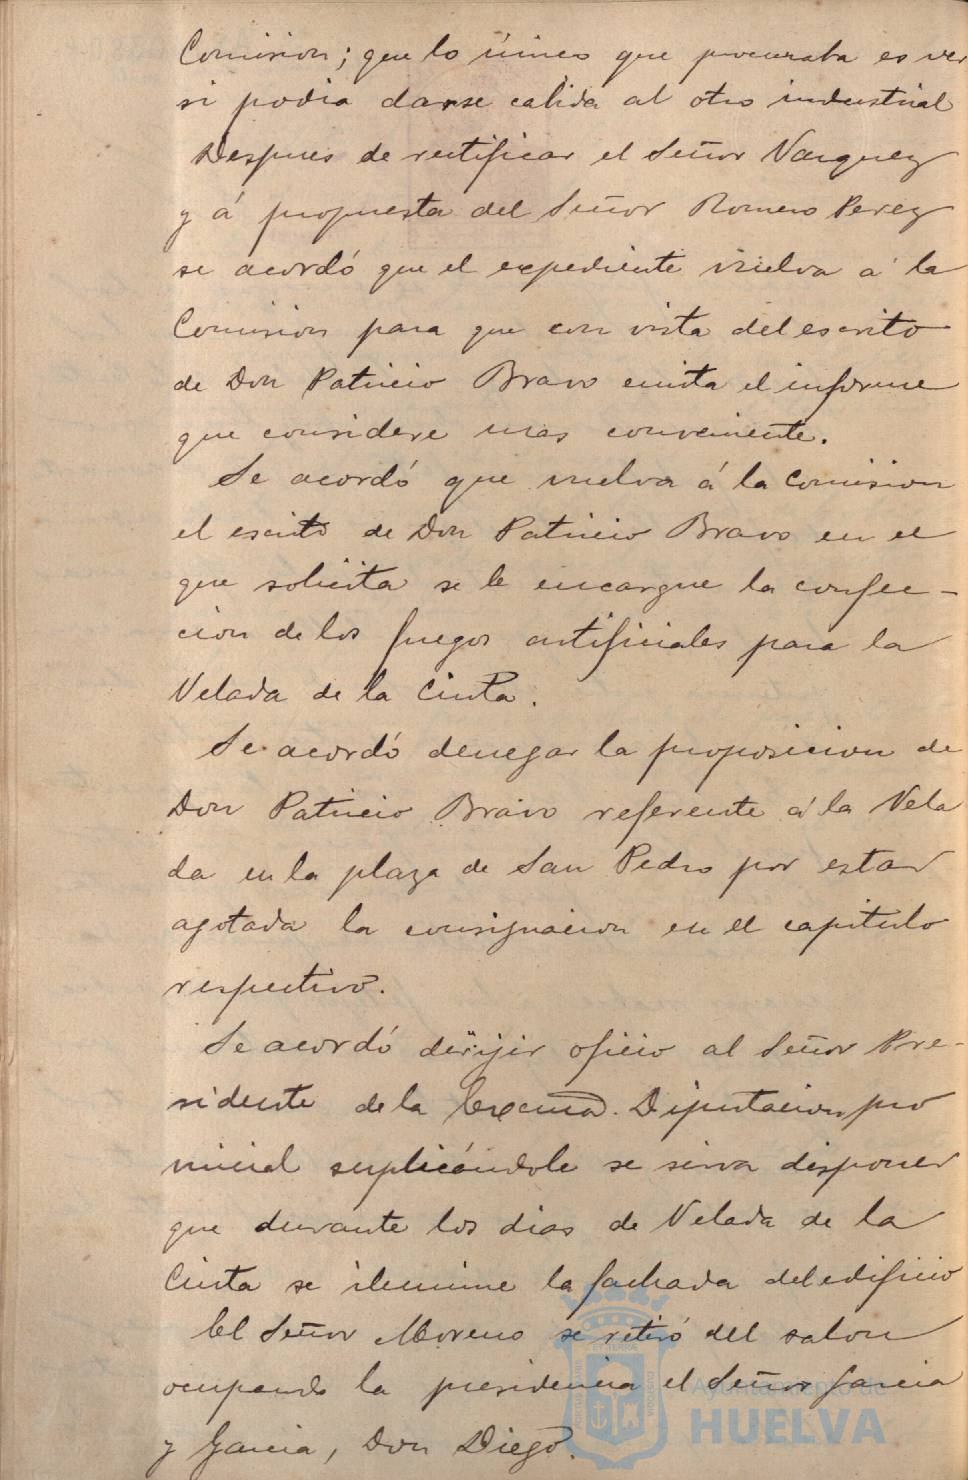 Comision; que lo único que procuraba es ver
si podia darse cabida al otro industrial
Despues de rectificar el Señor Vazquez
y á propuesta del Señor Romero Perez
se acordó que el expediente vuelva á la
Comision para que con vista del escrito
de Don Patricio Bravo emita el informe
que considere mas conveniente.
Se acordó que vuelva á la Comision
el escrito de Don Patricio Bravo en el
que solicita se le encargue la confec-
cion de los fuegos artificiales para la
Velada de la Cinta.
Se acordó denegar la proposicion de
Don Patricio Bravo referente á la Vela
da en la plaza de San Pedro por estar
agotada la consignacion en el capitulo
respectivo.
Se acordó dirijir oficio al Señor Pre-
sidente de la Excma. Diputacion pro
vincial suplicándole se sirva disponer
que durante los dias de Velada de la
Cinta se ilumine la fachada del edificio
El Señor Moreno se retiró del salon
ocupando la presidencia el Señor Garcia
y Garcia, Don Diego.
Ayuntamiento de
HUELVA